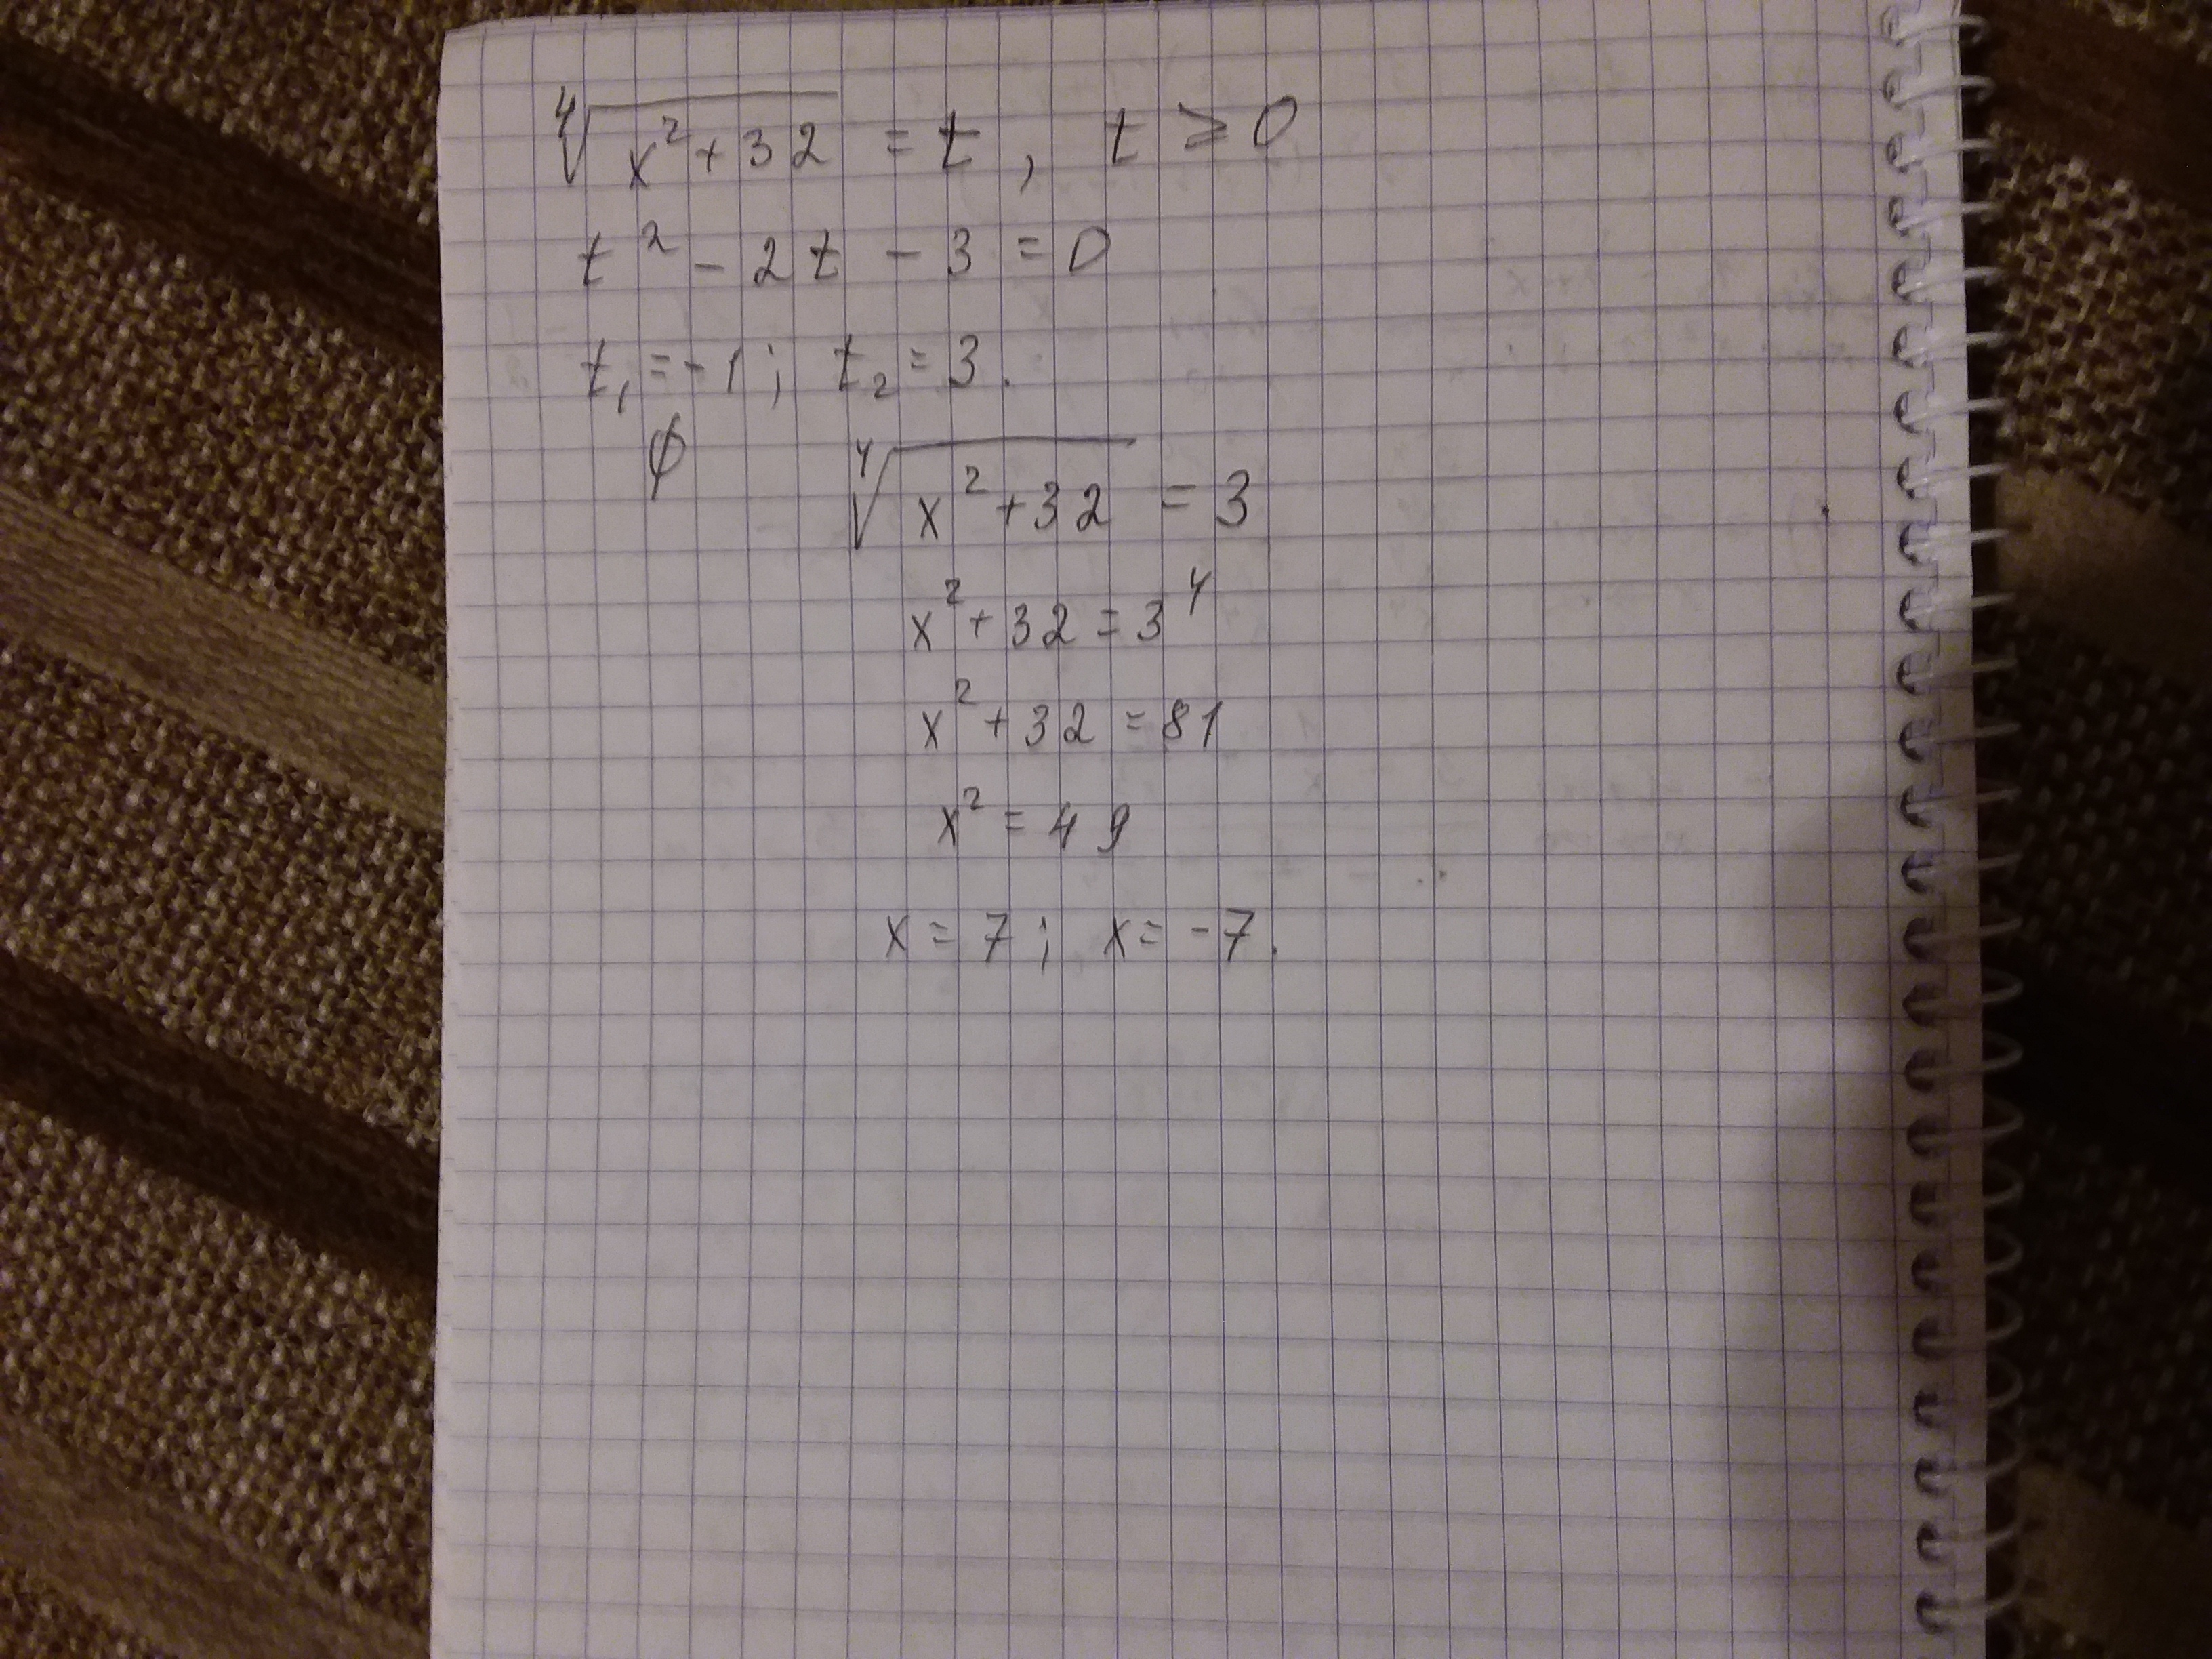 ⁴√(x² + 32) = t, t ≥ 0
t² - 2t - 3 = 0
t₁ = -1; t₂ = 3.
∅ ⁴√(x² + 32) = 3
x² + 32 = 3⁴
x² + 32 = 81
x² = 49
x = 7; x = -7.